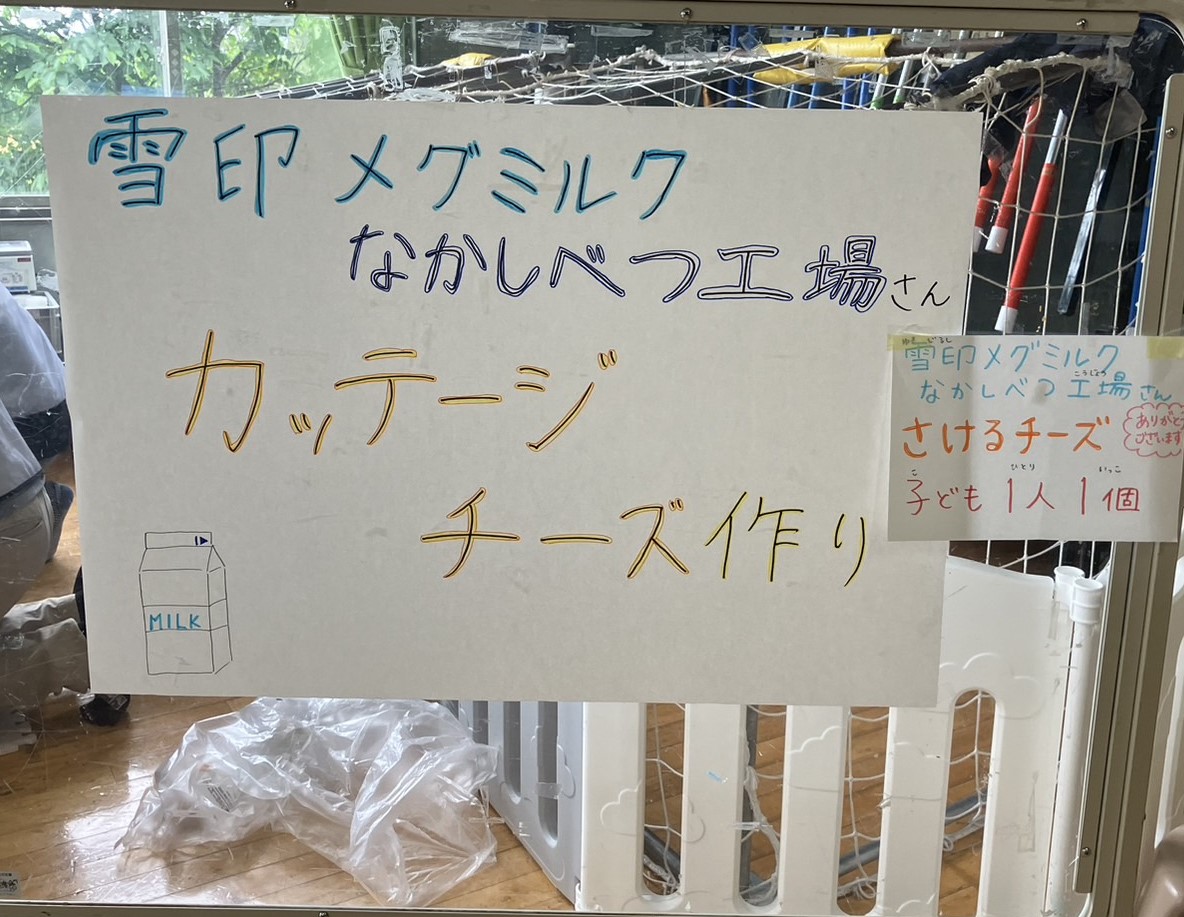 雪印メグミルク
なかしべつ工場さん
カッテージ
チーズ作り
MILK
ゆき じるし
雪印メグミルク
こうじょう
なかしべつ工場さん
さけるチーズ
ありがとう
ございます
こ ひとり いっこ
子ども1人1個